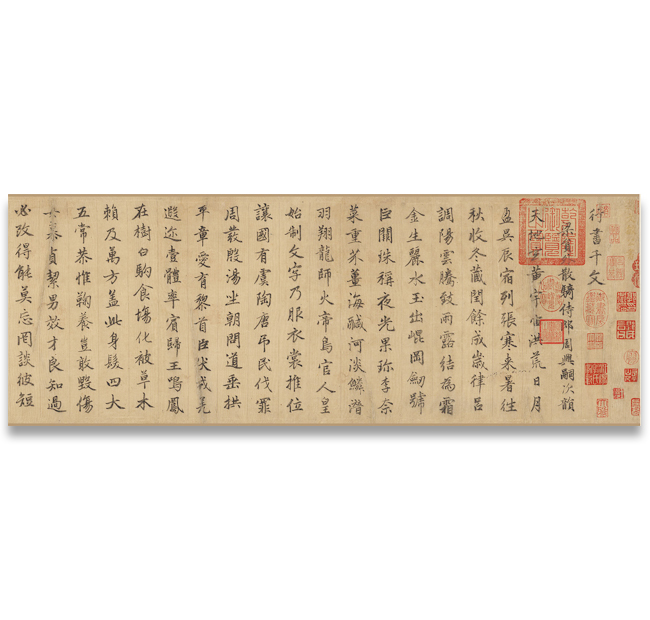 行書千文
梁員外散騎侍郎周興嗣次韻
天地玄黃宇宙洪荒日月
盈昃辰宿列張寒来暑往
秋收冬藏閏餘成歲律呂
調陽雲騰致雨露結為霜
金生麗水玉出崐岡劒號
巨闕珠稱夜光果珎李奈
菜重芥薑海醎河淡鱗潛
羽翔龍師火帝鳥官人皇
始制文字乃服衣裳推位
讓國有虞陶唐弔民伐罪
周發殷湯坐朝問道垂拱
平章愛育黎首臣伏戎羌
遐迩壹體率賓歸王鳴鳳
在樹白駒食場化被草木
賴及萬方盖此身髮四大
五常恭惟鞠養豈敢毀傷
女慕貞絜男效才良知過
必改得能莫忘罔談彼短